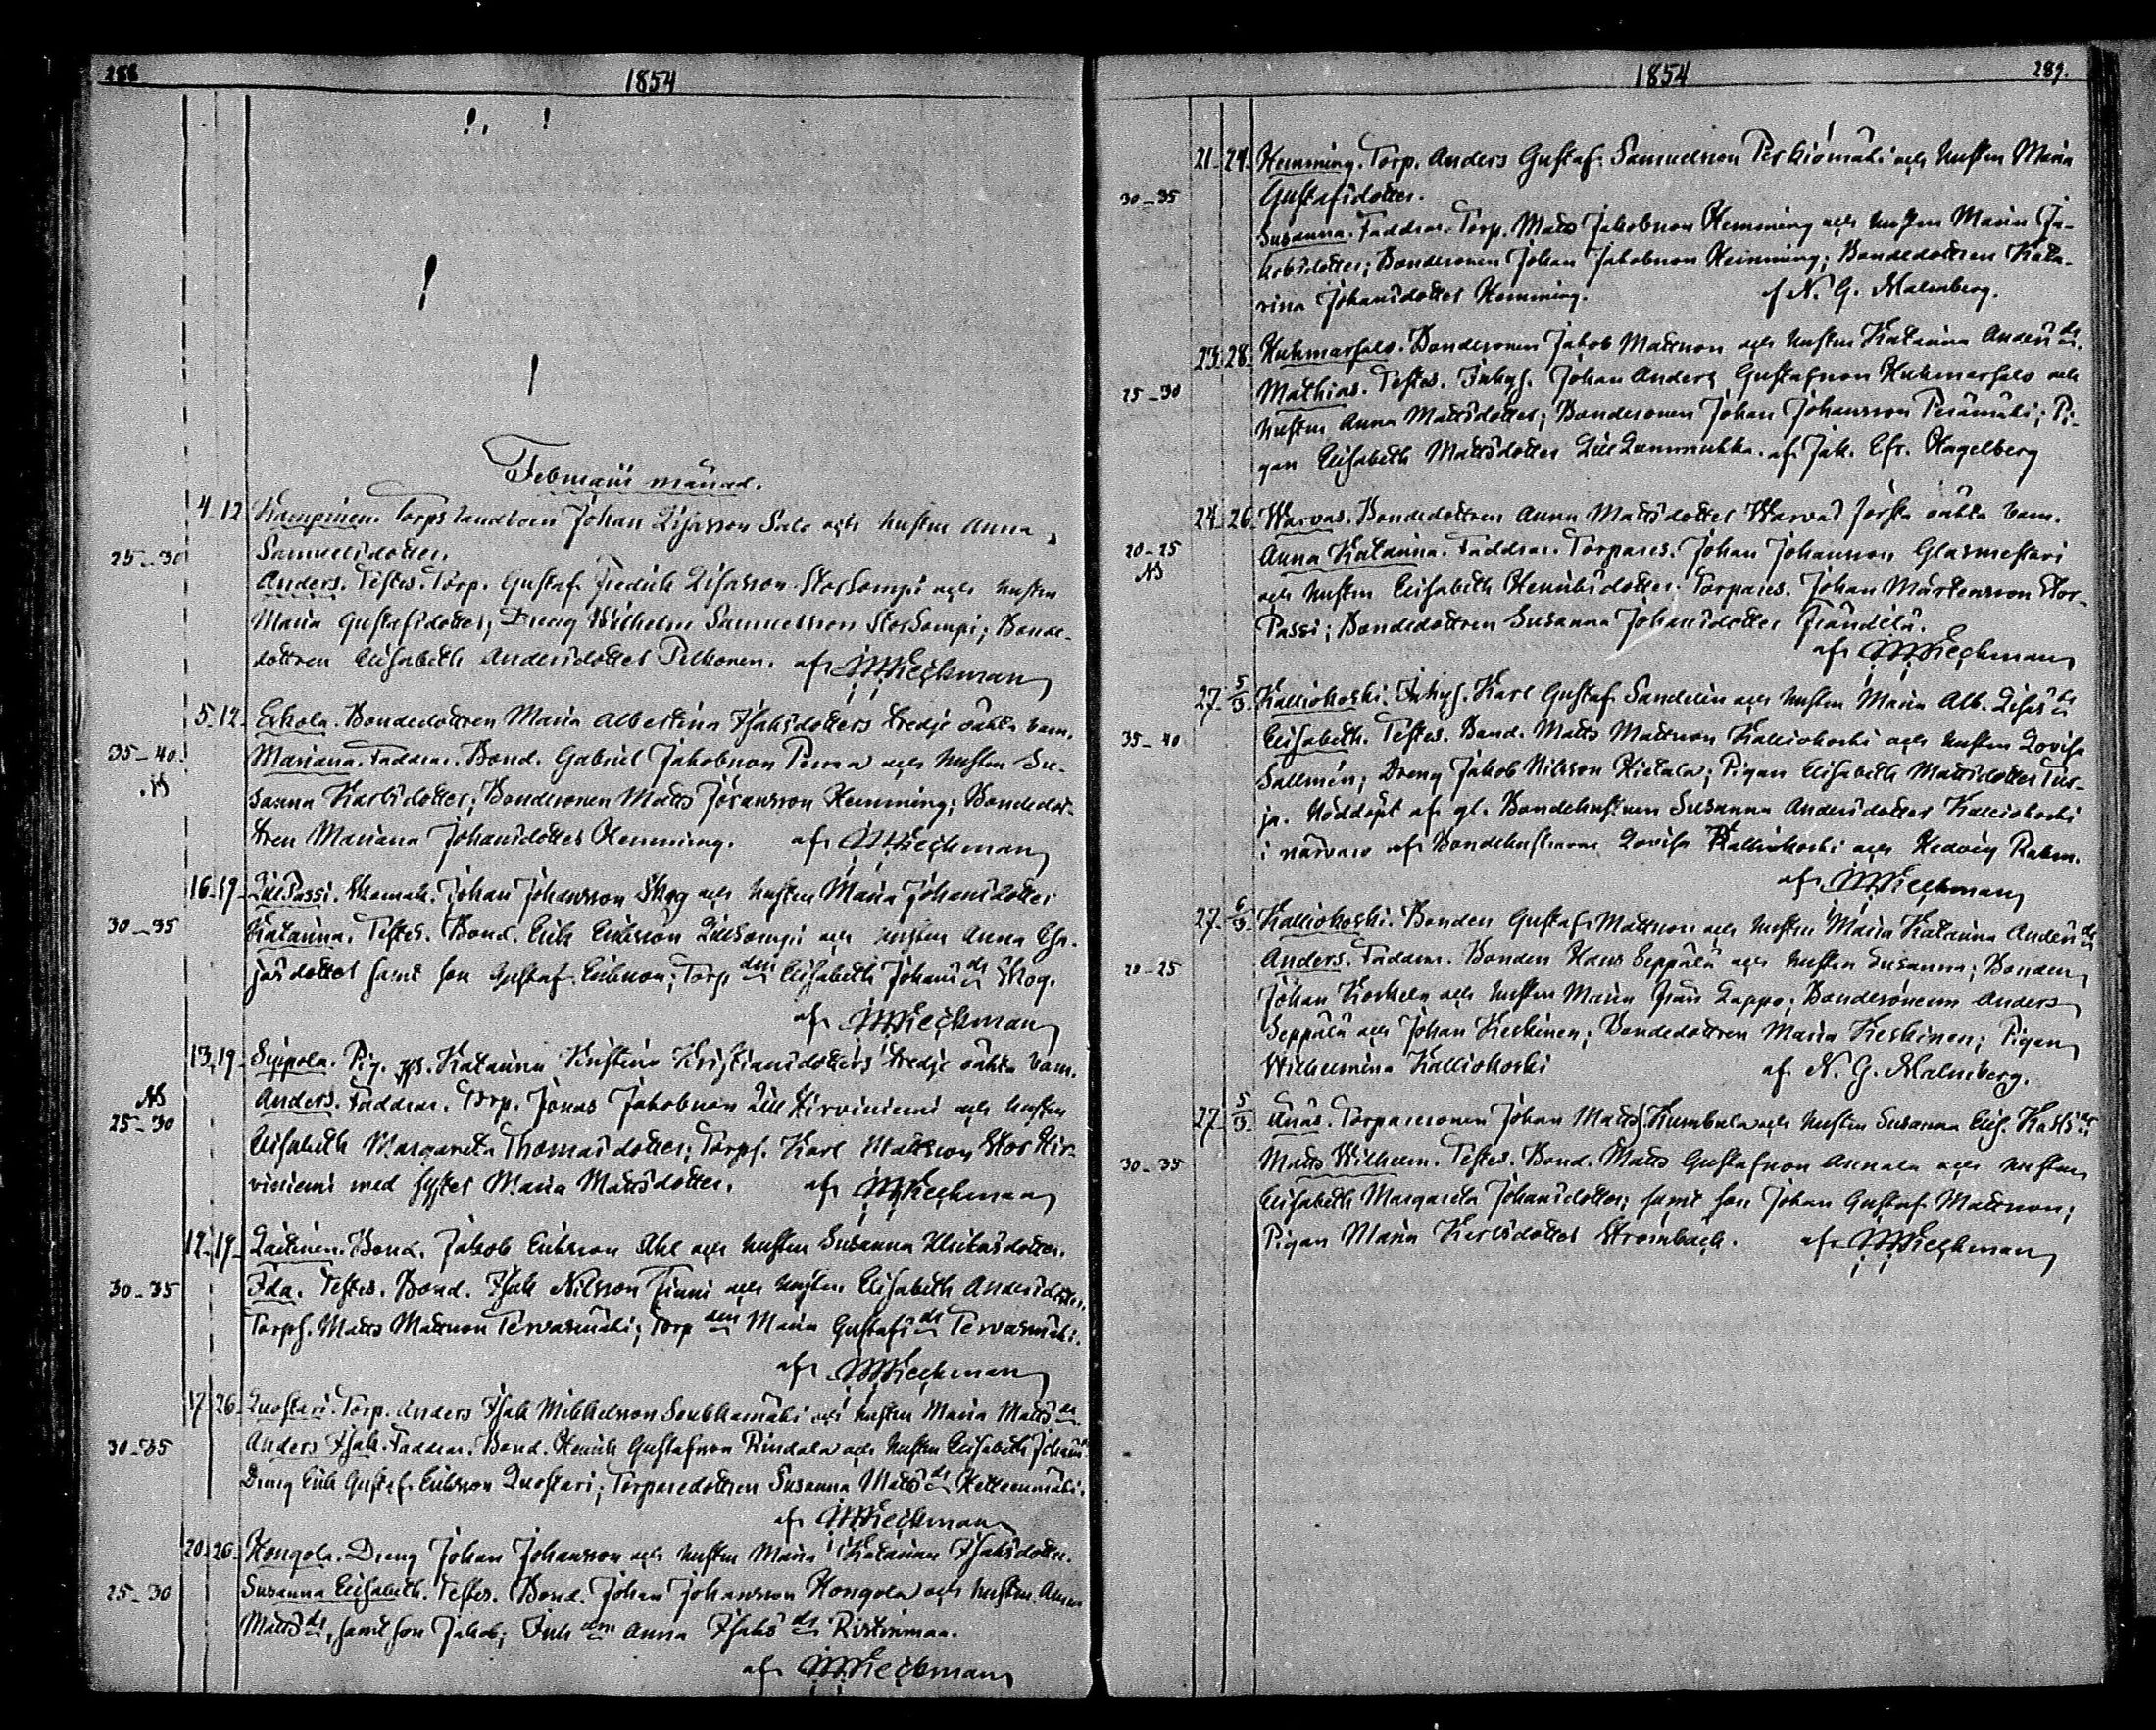 288
1854
Februarii månad.
4 12 Kampinen. Torpslandbon Johan Eliasson Salo och hustru Anna
25-30 Samuelsdotter.
Anders. Testes. Torp. Gustaf Fredrik Eliasson StorSompi och hustru
Maria Gustafsdotter; Dreng Wilhelm Samuelsson StorSompi; Bonde-
dottren Elisabeth Andersdotter Pelkonen. af
5 12 Erkola. Bondedottren Maria Albertina Isaksdotters tredje oäkta barn.
35-40 Mariana. Faddrar. Bond. Gabriel Jakobsson Perraa och hustru Su-
sanna Karlsdotter; Bondesonen Matts Johansson Hemming; Bondedot-
tren Mariana Johansdotter Hemming. af
16 19 LillPassi. Skomak. Johan Johansson Skog och hustru Maria Johansdotter
30-35 Katarina. Testes. Bond. Erik Eriksson LillSompi och hustru Anna Esa-
jasdotter samt son Gustaf Eriksson; Torp.den Elisabeth Johansdr Skog.
af
13 19 Sippola. Pig. Katarina Kristina Kristiansdotters tredje oäkta barn.
Anders. Faddrar. Torp. Jonas Jakobsson Lill Hirviniemi och hustru
25-30 Elisabeth Margareta Thomasdotter; Torps. Karl Mattsson Stor Hir-
viniemi med syster Maria Mattsdotter. af
12 19 Laitinen. Bond. Jakob Eriksson Ahl och hustru Susanna Ulrikasdotter.
30-35 Ida. Testes. Bond. Isak Nilsson Finni och hustru Elisabeth Andersdotter.
Torps. Matts Mattsson Tervasmäki; Torp.den Maria Gustafsdr Tervasmäki.
af
17 26 Luostari. Torp. Anders Isak Mikkelsson Soukkamäki och hustru Maria Mattsdr
30-35 Anders Isak. Faddrar. Bond. Henrik Gustafsson Rindala och hustru Elisabeth Johansdr
Dreng Erik Gustaf Eriksson Luostari; Torparedottren Susanna Mattsdr Ketteenmäki.
af
20 26 Hongola. Dreng Johan Johansson och hustru Maria Katarina Isaksdotter.
25-30 Susanna Elisabeth. Testes. Bond. Johan Johansson Hongola och hustru Anna
Mattsdr, samt son Jakob; Inh.den Anna Isaksdr Ristinmaa.
af
1854
289.
21 24 Hemming. Torp. Anders Gustaf Samuelsson Perkiömäki och hustru Maria
30-35 Gustafsdotter.
Susanna. Faddrar. Torp. Matts Jakobsson Hemming och hustru Maria Ja-
kobsdotter; Bondesonen Johan Jakobsson Hemming; Bondedottren Kata-
rina Johansdotter Hemming. af N. G. Malmberg.
23 28 Huhmarsalo. Bondesonen Jakob Mattsson och hustru Katarina Andersdr.
25-30 Mathias. Testes. Inhys. Johan Anders Gustafsson Huhmarsalo och
hustru Anna Mattsdotter; Bondesonen Johan Johansson Perämäki; Pi-
gan Elisabeth Mattsdotter Lill Lummukka. af Jak. Efr. Hagelberg
24 26 Warvas. Bondedottren Anna Mattsdotter Warvas första oäkta barn.
20-25 Anna Katarina. Faddrar. Torpares. Johan Johansson Glasmestari
och hustru Elisabeth Henriksdotter. Torpares. Johan Mårtensson Stor-
Passi; Bondedottren Susanna Johansdotter Frändilä.
af
27 5/3 Kalliokoski. Inhys. Karl Gustaf Sandelin och hustru Maria Alb. Eliasdr
35-40 Elisabeth. Testes. Bond. Matts Mattsson Kalliokoski och hustru Lovisa
Sallmén; Dreng Jakob Nilsson Hietala; Pigan Elisabeth Mattsdotter Tur-
ja. Nöddöpt af gl. Bondehustrun Susanna Andersdotter Kalliokoski
i närvaro af Bondehustrurne Lovisa Kalliokoski och Hedvig
af
27 6/3 Kalliokoski. Bonden Gustaf Mattsson och hustru Maria Katarina Andersdr
20-25 Anders. Faddrar. Bonden Hans Seppälä och hustru Susanna; Bonden
Johan Koskela och hustru Maria från Lappo; Bondesönerne Anders
Seppälä och Johan Keskinen; Bondedottren Maria Keskinen; Pigan
Wilhelmina Kalliokoski af N. G. Malmberg.
27 5/3 Anäs. Torparesonen Johan Matts. Kumbula och hustru Susanna Elis. Karlsdr
30-35 Matts Wilhelm. Testes. Bond. Matts Gustafsson Annala och hustru
Elisabeth Margareta Johansdotter; samt son Johan Gustaf Mattsson;
Pigan Maria Karlsdotter Strömbäck. af